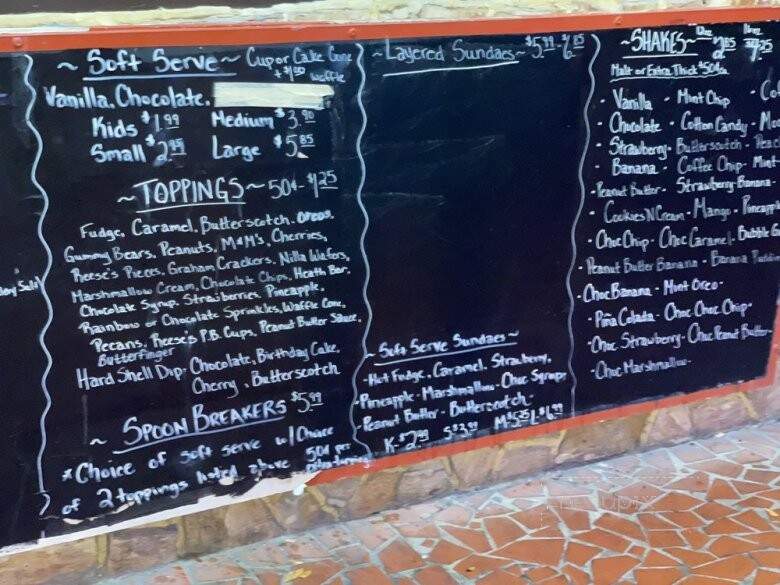 ~ Soft Serve ~ Cup or Cake Cone
+ $1.00 waffle
Vanilla, Chocolate,
Kids $1.99 Medium $3.90
Small $2.99 Large $5.85
~ TOPPINGS ~ 50¢ - $1.25
Fudge, Caramel, Butterscotch, Oreos,
Gummy Bears, Peanuts, M&M's, Cherries,
Reese's Pieces, Graham Crackers, Nilla Wafers,
Marshmallow Cream, Chocolate Chips, Heath Bar,
Chocolate Syrup, Strawberries, Pineapple,
Rainbow or Chocolate Sprinkles, Waffle Cone,
Pecans, Reese's P.B. Cups, Peanut Butter Sauce,
Butterfinger
Hard Shell Dip- Chocolate, Birthday Cake,
Cherry, Butterscotch
~ SPOON BREAKERS $5.99
*Choice of soft serve w/ Choice
of 2 toppings listed above 50¢ per
~ Layered Sundaes ~ $5.99 - 6.85
~ Soft Serve Sundaes ~
- Hot Fudge, Caramel, Strawberry,
- Pineapple - Marshmallow - Choc Syrup
- Peanut Butter - Butterscotch -
K- $2.99 S $3.99 M $5.25 L $6.99
~ SHAKES ~
Malt or Extra Thick 50¢ ea
- Vanilla - Mint Chip -
- Chocolate - Cotton Candy -
- Strawberry - Butterscotch -
- Banana - Coffee Chip - Mint
- Peanut Butter - Strawberry-Banana
- Cookies N Cream - Mango - Pineapple
- Choc Chip - Choc Caramel - Bubble
- Peanut Butter Banana - Banana Pudding
- Choc Banana - Mint Oreo -
- Piña Colada - Choc Choc Chip -
- Choc Strawberry - Choc Peanut Butter
- Choc Marshmallow -